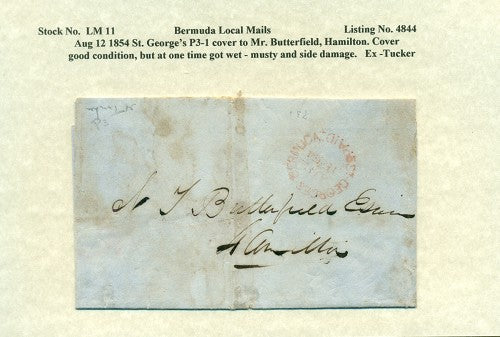 Stock No. LM 11 Bermuda Local Mails Listing No. 4844
Aug 12 1854 St. George's P3-1 cover to Mr. Butterfield, Hamilton. Cover
good condition, but at one time got wet - musty and side damage. Ex -Tucker
P3
N T Butterfield Esqr
Hamilton